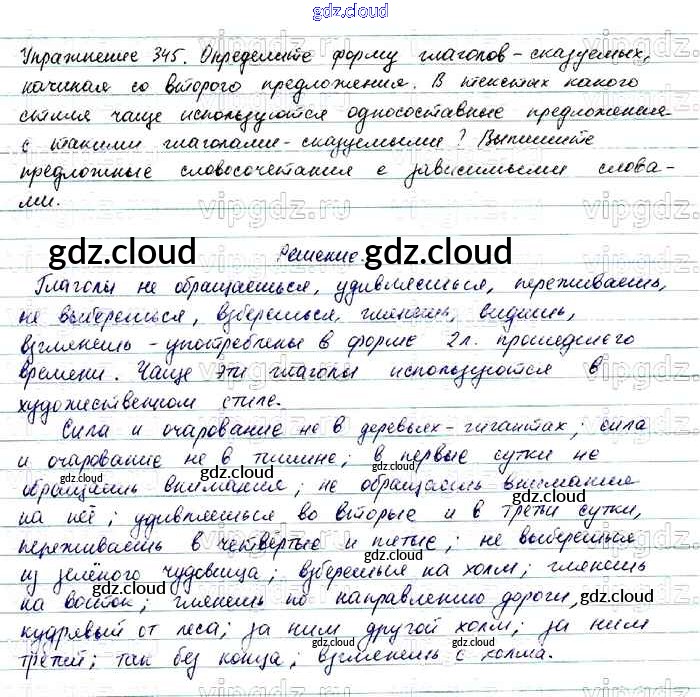 gdz.cloud
Упражнение 345. Определите форму глаголов-сказуемых,
начиная со второго предложения. В текстах какого
стиля чаще используются односоставные предложения
с такими глаголами-сказуемыми? Выпишите
предложные словосочетания с зависимыми слова-
ми.
gdz.cloud Решение. gdz.cloud
Глаголы не обращаешься, удивляешься, переживаешь,
не выберешься, взберешься, глянешь, видишь,
взглянешь - употреблены в форме 2л. прошедшего
времени. Чаще эти глаголы используются в
художественном стиле.
Сила и очарование не в деревьях-гигантах; сила
и очарование не в тишине; в первые сутки не
обращаешь внимания; не обращаешь внимания
на неё; удивляешься во вторые и в третьи сутки,
переживаешь в четвёртые и пятые; не выберешься
из зелёного чудовища; взберешься на холм; глянешь
на восток; глянешь по направлению дороги,
кудрявый от леса; за ним другой холм; за ним
третий; так без конца; взглянешь с холма.